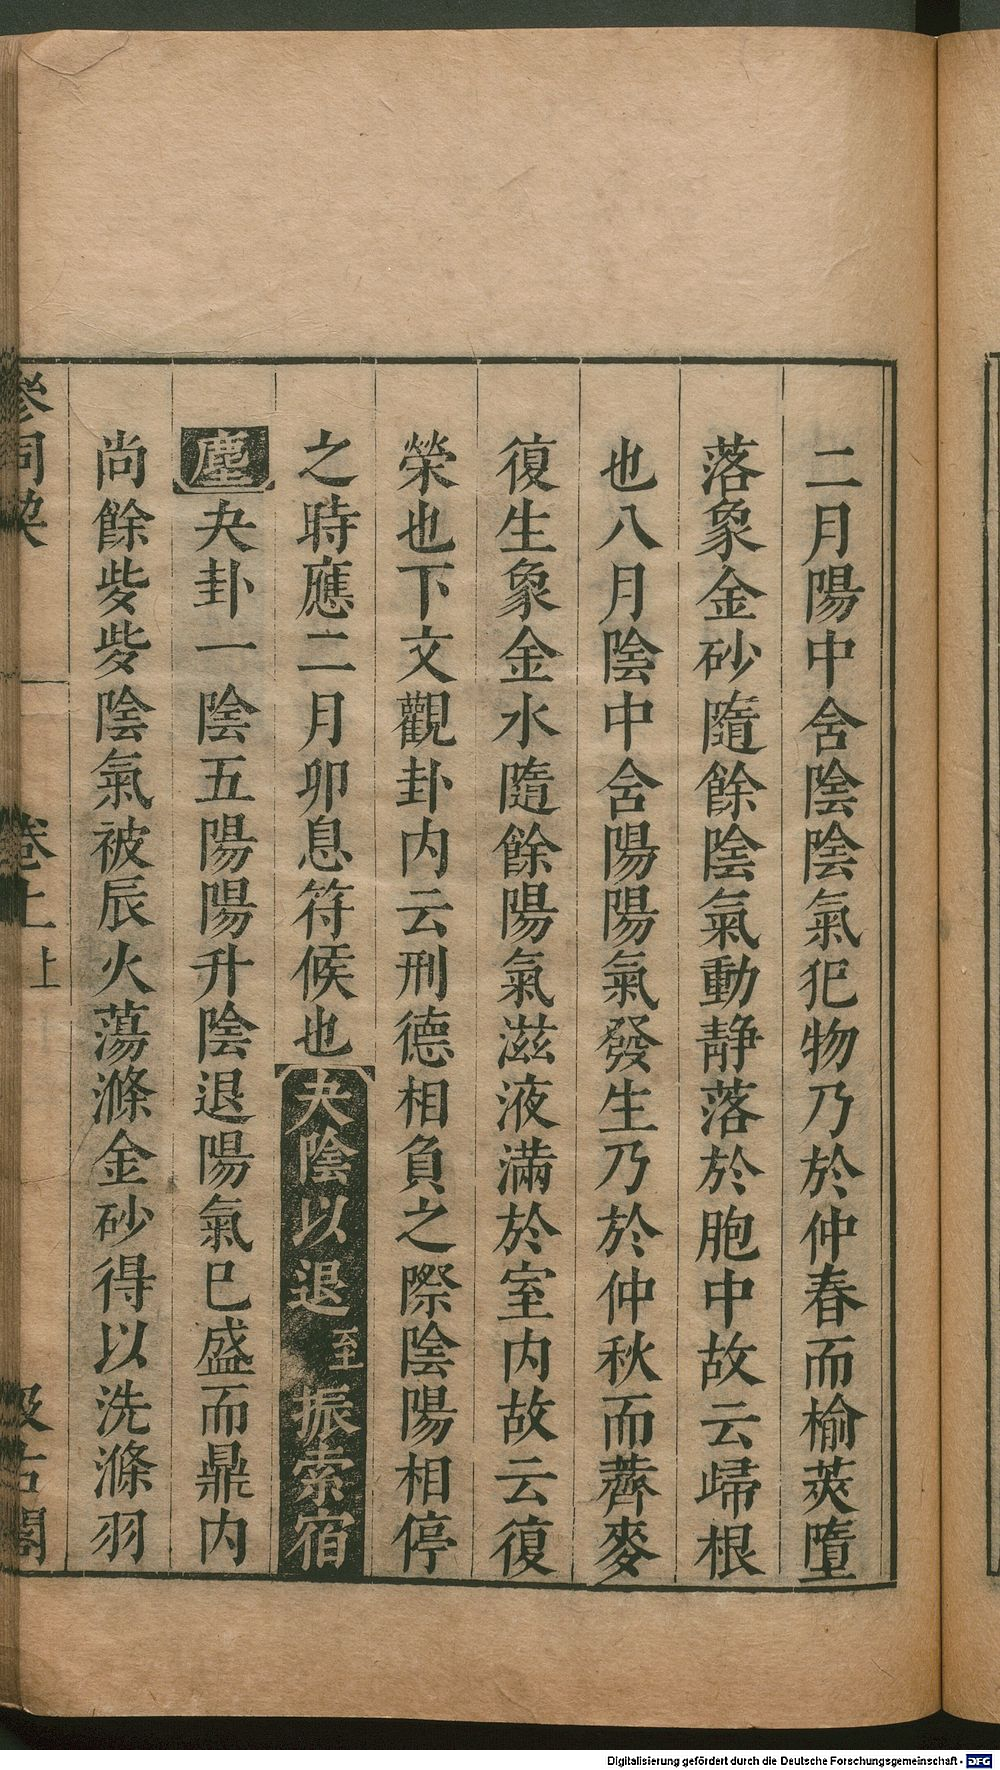 二月陽中含陰陰氣犯物乃於仲春而榆莢墮
落象金砂隨餘陰氣動靜落於胞中故云歸根
也八月陰中含陽陽氣發生乃於仲秋而薺麥
復生象金水隨餘陽氣滋液滿於室内故云復
榮也下文觀卦内云刑德相負之際陰陽相停
之時應二月卯息符候也夬陰以退至振索宿
塵夬卦一陰五陽陽升陰退陽氣已盛而鼎内
尚餘些些陰氣被辰火蕩滌金砂得以洗滌羽
參同契 卷上上 汲古閣
Digitalisierung gefördert durch die Deutsche Forschungsgemeinschaft - DFG